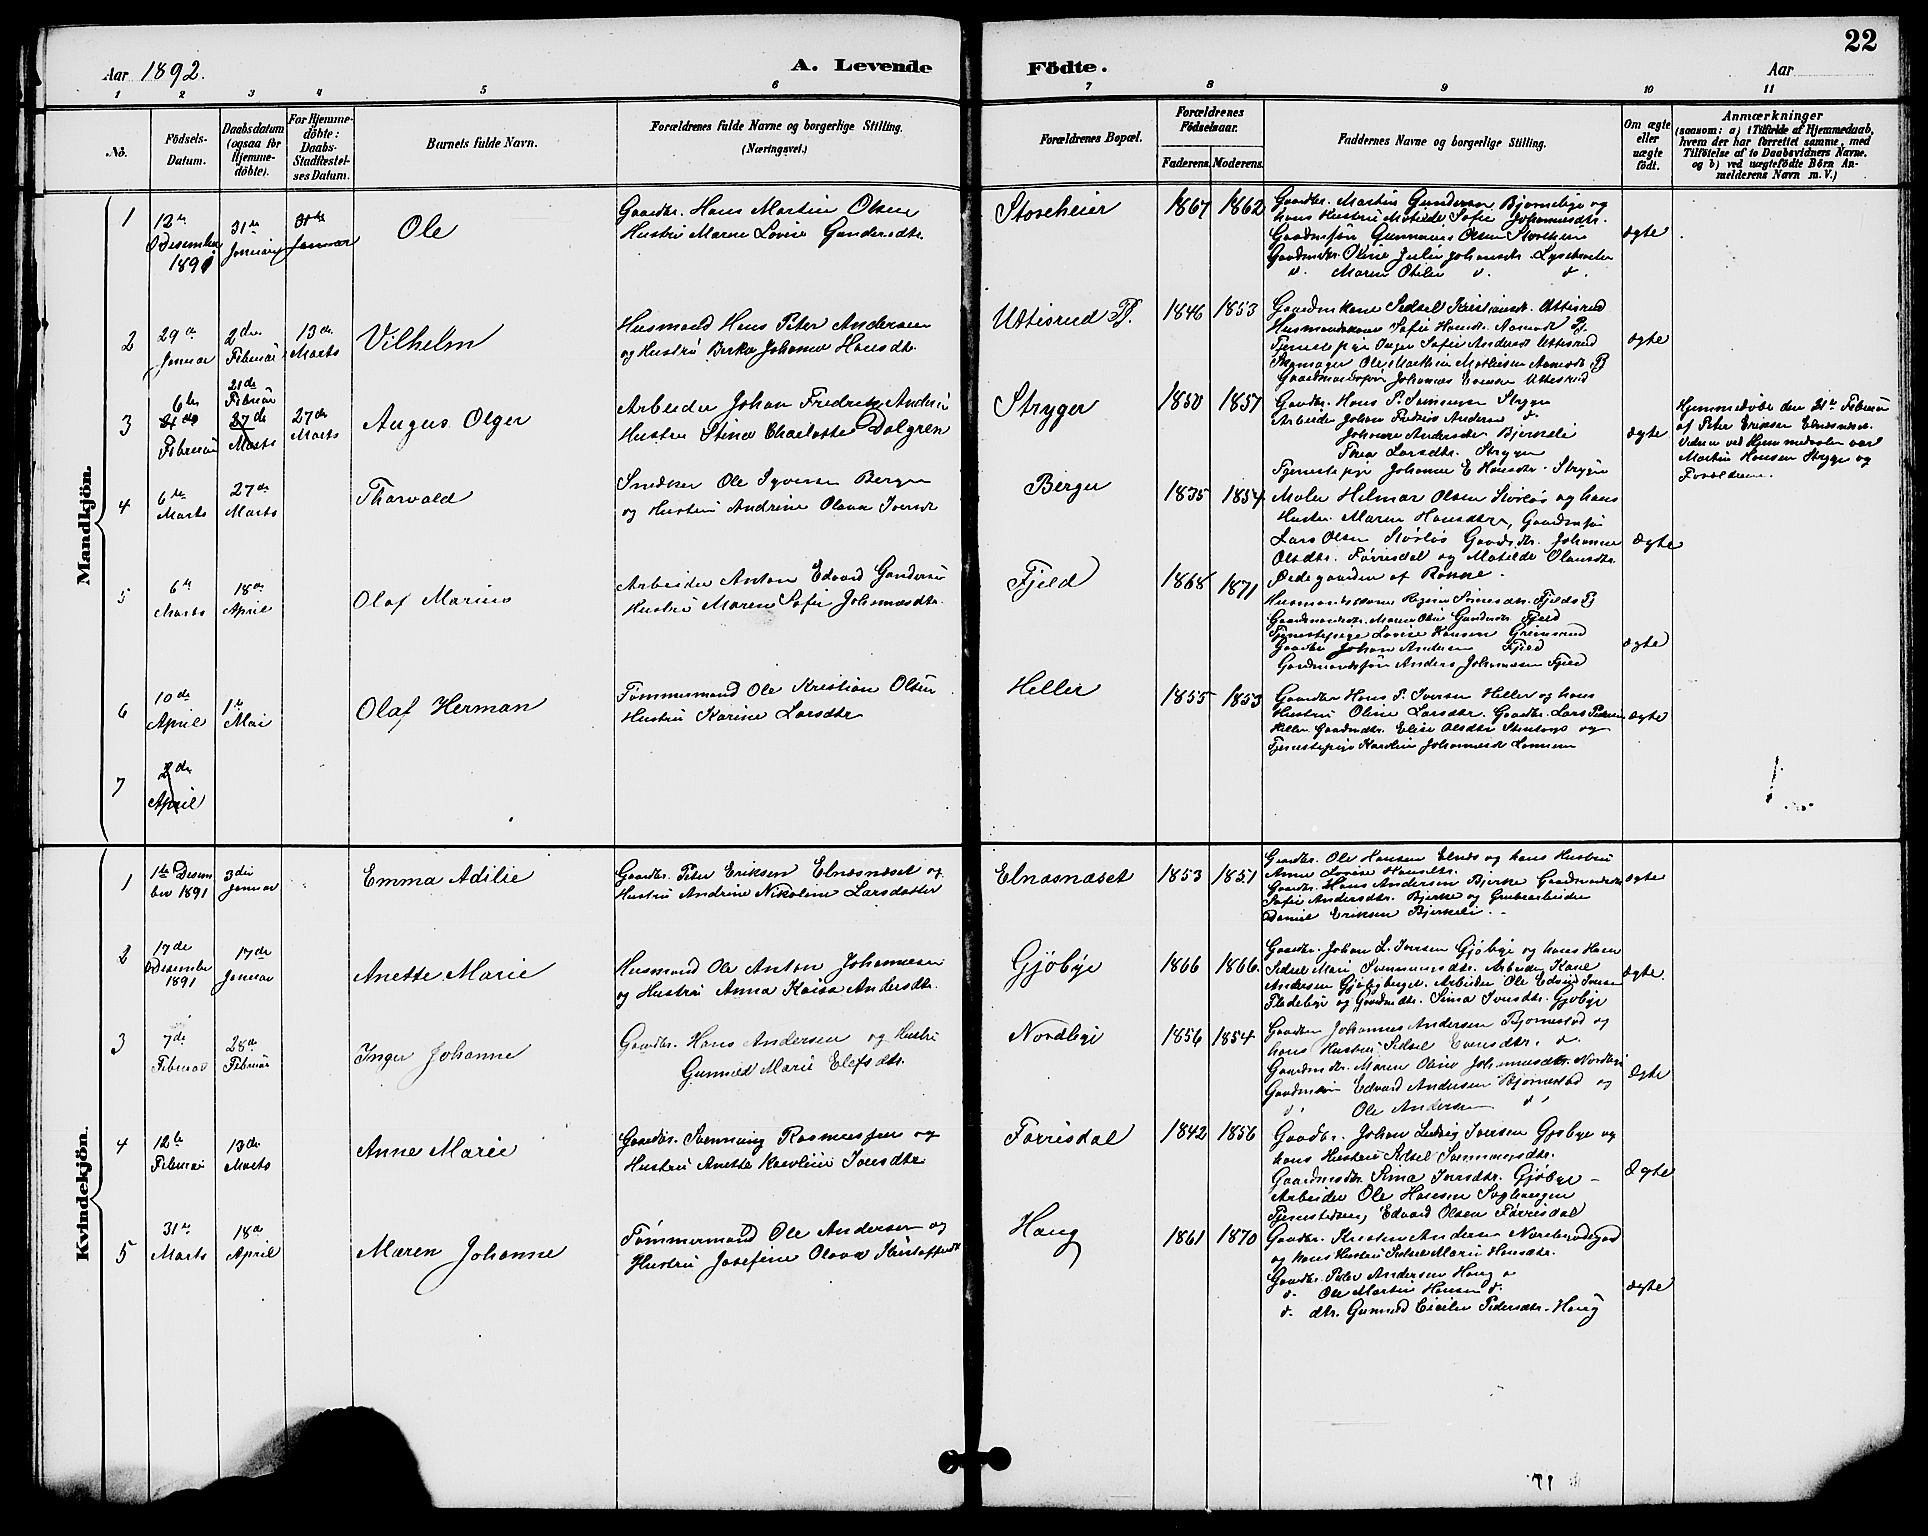 22
Aar 1892.
A. Levende Födte.
Aar
1 2 3 4 5 6 7 8 9 10 11
No.
Födsels-
Datum.
Daabsdatum
(ogsaa for
Hjemme-
döbte).
For Hjemme-
döbte:
Daabs-
Stadfæstel-
ses Datum.
Barnets fulde Navn.
Forældrenes fulde Navne og borgerlige Stilling.
(Næringsvei.)
Forældrenes Bopæl.
Forældrenes
Födselsaar.
Faderens. Moderens.
Faddernes Navne og borgerlige Stilling.
Om ægte
eller
uægte
født.
Anmærkninger
(saasom: a) i Tilfælde af Hjemmedaab,
hvem der har forrettet samme, med
Tilföielse af to Daabsvidners Navne.
og b) ved uægtefödte Börn An-
melderens Navn m. V.)
Mandkjön.
1
12te
Desember
1891
31te
Januar
31te
Januar
Ole
Gaardbr. Hans Martin Olsen
Hustru Maren Lovise Gundersdtr
Storeheier
1867 1862
Gaardbr. Martin Gundersen Bjørnebye og
hans Hustru Matilde Sofie Johannesdtr.
Gaardmsøn Gunnerius Olsen Storeheier
Gaardmdtr. Oline Julie Johansdtr.
d. Maren Otilie d. d.
ægte
2
29de
Januar
2den
Februar
13de
Marts
Vilhelm
Husmand Hans Peter Andersen
og Hustru Johanne Hansdtr.
Uttisrud Pl.
1846 1853
Gaardmkone Sidsel Kristiansdtr. Uttisrud
Husmandskone Sofie Hansdtr.
Tjenestepige Inger Sofie Andersdtr Uttisrud
Ole Mathisen
Gaardmandssøn Johannes Uttisrud
ægte
3
6te
21de
Februar
21de
Februar
27de
Marts
27de
Marts
Augus Olger
Arbeider Johan Fredrik Andersen
Hustru Stina Charlotte Dalgren
Stryger
1850 1857
Gaardbr. Hans P. Simensen Stryger
Arbeider Johan Andersen d.
Johanne Andersdtr Bjerkeli
Thea Larsdtr. Stryger
Tjenestepige Johanne E Hansdtr. Stryger
ægte
Hjemmedøbt den 21de Februar
af Peter Eriksen Elnæsnæset.
Vidner ved Hjemmedaaben var
Martin Hansen Stryger og
Forældrene.
4
6te
Marts
27de
Marts
Thorvald
Snedker Ole Iversen Berger
og Hustru Andrine Olava Iversdtr
Berger
1835 1854
Maler Hilmar Olsen og hans
Hustru Maren Hansdtr, Gaardmsøn
Lars Olsen Gaardmdtr. Johanne
Olsdtr. Førrisdal og Matilde Olausdtr.
ægte
5
6te
Marts
18de
April
Olaf Marius
Arbeider Anton Edvard Gundersen
Hustru Maren Sofie Johannesdtr.
Fjeld
1868 1871
Ødegaarden af Rønne.
Husmandskone Regine Simensdtr. Fjelds Pl
Gaardmandsdtr. Maren Oline Gundersdtr Fjeld
Tjenestepige Lovise Hansen Grimsrud
Gaardbr Johan Andersen Fjeld
Gaardmandssøn Anders Johannesen Fjeld
ægte
6
10de
April
1te
Mai
Olaf Herman
Tømmermand Ole Kristian Olsen
Hustru Karine Larsdtr
Heller
1855 1853
Gaardbr Hans P. Iversen Heller og hans
Hustru Oline Larsdtr. Gaardbr. Lars Pedersen
Heller Gaardmdtr. Elise Olsdtr og
Tjenestepige Karoline Johannesdtr
ægte
7
2de
April
Kvindekjön.
1
1te Desem
ber 1891
3die
Januar
Emma Adilie
Gaardbr. Peter Eriksen Elnæsnæset og
Hustru Andrine Nikoline Larsdatter
Elnæsnæset
1853 1851
Gaardbr. Ole Hansen Elnæs og hans Hustru
Anne Lovise Hansdtr.
Gaardbr. Hans Andersen Bjerke Gaardmandsdtr
Sofie Andersdtr. Bjerke og Grubearbeider
Daniel Eriksen Bjerkeli
ægte
2
17de
Desember
1891
17de
Januar
Anette Marie
Husmand Ole Anton Johannesen
og Hustru Anna Kaisa Andersdtr.
Gjøbye
1866 1866
Gaardbr. Johan L. Iversen Gjøbye og hans Kone
Sidsel Marie Svenningsdtr. Arbeider Karl
Andersen Gjøbyberget. Arbeider Ole Edvin Iversen
Fladebye og Gaardmdtr. Sina Iversdtr. Gjøbye
ægte
3
7de
Februar
28de
Februar
Inger Johanne
Gaardbr. Hans Andersen og Hustru
Gunnild Marie Elefsdtr.
Nordbye
1856 1854
Gaardbr Johannes Andersen Bjørnestad og
hans Hustru Sidsel Evensdtr. d.
Gaardmdtr. Maren Oline Johannesdtr. Nordbye
Gaardmsøn Edvard Andersen Bjørnestad og
d. Ole Andersen d.
Ægte
4
12te
Februar
13de
Marts
Anne Marie
Gaardbr. Svenning Rasmussen og
Hustru Anette Karoline Iversdtr
Førrisdal
1842 1856
Gaardbr. Johan Ludvig Iversen Gjøbye og
hans Hustru Sidsel Svenningsdtr.
Gaardmsdtr. Sina Iversdtr. Gjøbye -
Arbeider Ole Hansen
Tjenestedreng Edvard Olsen Førrisdal
Ægte
5
31te
Marts
18de
April
Maren Johanne
Tømmermand Ole Andersen og
Hustru Josefine Olava
Haug
1861 1870
Gaardbr. Kristen Andersen
og hans Hustru Sidsel Marie Hansdtr.
Gaardbr. Peter Andersen Haug
d. Ole Martin Hansen d.
d. dtr. Gunnild Cicilie Pedersdtr. Haug
ægte